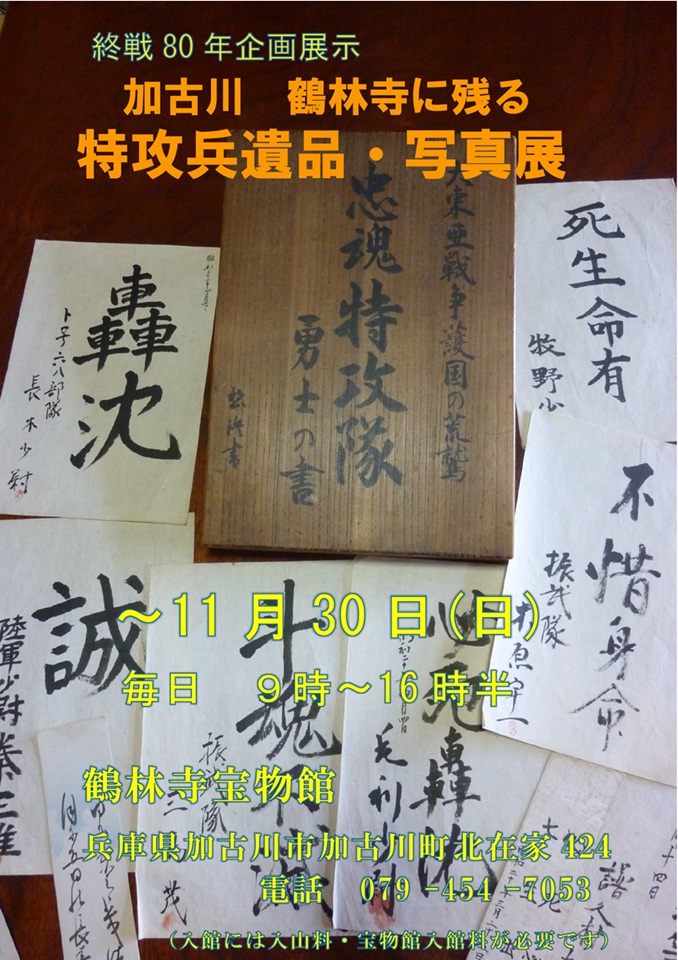 終戦80年企画展示
加古川　鶴林寺に残る
特攻兵遺品・写真展
大東亜戦争護国の荒鷲
忠魂特攻隊
勇士の書
死生命有
牧野少
轟沈
長木少尉
不惜身命
振武隊
誠
陸軍少尉
斗魂不滅
振武隊
心死轟沈
毛利少尉
～11月30日(日)
毎日　9時～16時半
鶴林寺宝物館
兵庫県加古川市加古川町北在家424
電話　079-454-7053
（入館には入山料・宝物館入館料が必要です）